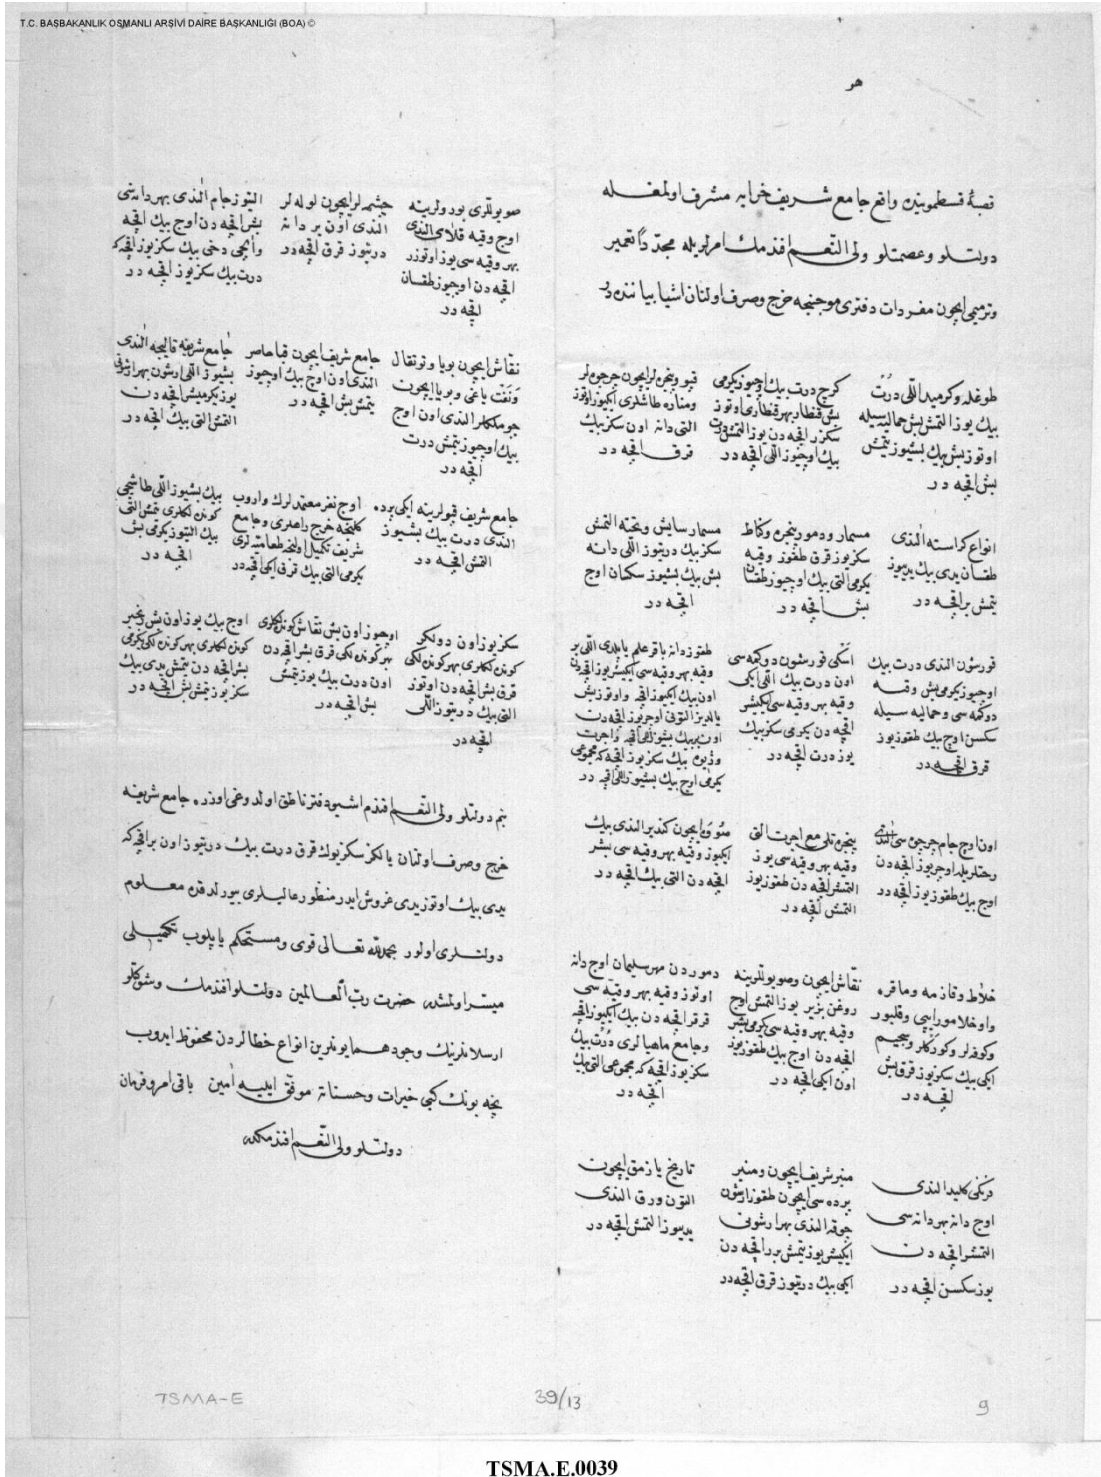 T.C. BAŞBAKANLIK OSMANLI ARŞİVİ DAİRE BAŞKANLIĞI (BOA) ©
هو
قصبۀ قسطمونیده واقع جامع شریف خرابه مشرف اولمغله
دولتلو وعصمتلو ولی النعم افندمك امرلریله مجدداً تعمیر
وترمیمی ایچون مفردات دفتری موجبنجه خرج وصرف اولنان اشیا بیاننده در
طوغله وكرمید اللی درت
بیك یوز التمش بش حمالیه سیله
اوتوز بش بیك بشیوز یتمش
بش اقچه در
كرچ درت بیك اوچیوز یكرمی
بش قنطار بهر قنطاری اوتوز
سكزر اقچه دن یوز التمش درت
بیك اوچیوز اللی اقچه در
قپو وپنجره لر ایچون چرچوه لر
ومناره طاشلری ایكیوز اوتوز
التی دانه اون سكز بیك
قرق اقچه در
انواع كراسته الندی
طقسان یدی بیك یدیوز
یتمش بر اقچه در
مسمار ودمور پنجره وكناط
سكزیوز قرق طقوز وقیه
یكرمی التی بیك اوچیوز طقسان
بش اقچه در
مسمار سایش وتخته التمش
سكز بیك درتیوز اللی دانه
بش بیك بشیوز سكسان اوچ
اقچه در
قورشون الندی درت بیك
اوچیوز یكرمی بش وقیه
دوكمه سی وحمالیه سیله
سكسن اوچ بیك طقوزیوز
قرق اقچه در
اسكی قورشون دوكمه سی
اون درت بیك اللی ایكی
وقیه بهر وقیه سی ایكیشر
اقچه دن یكرمی سكز بیك
یوز درت اقچه در
طقوز دانه باقر علم یاپلدی اللی بر
وقیه بهر وقیه سی ایكیشر یوز اقچه دن
اون بیك ایكیوز اقچه واوتوز بش
یالدیز التونی اوچر یوز اقچه دن
اون بر بیك بشیوز اللی اقچه واجرت
بیك سكز یوز اقچه كه مجموعی
یكرمی اوچ بیك بشیوز اللی اقچه در
اون اوچ جام چرچوه سی الندی
رختلریله اوچر یوز اقچه دن
اوچ بیك طقوز یوز اقچه در
پنجره تلی مع اجرت التی
وقیه بهر وقیه سی یوز
التمشر اقچه دن طقوز یوز
التمش اقچه در
ایچون كندیر الندی بیك
ایكیوز وقیه بهر وقیه سی بشر
اقچه دن التی بیك اقچه در
خلاط وقازمه وماقره
واوخلامور ایپی وقلبور
وكوفه لر وكوركلر
ایكی بیك سكز یوز قرق بش
اقچه در
نقاش ایچون وصویوللرینه
روغن بزیر یوز التمش اوچ
وقیه بهر وقیه سی یكرمی بشر
اقچه دن اوچ بیك طقوز یوز
اون ایكی اقچه در
دموردن مهر سلیمان اوچ دانه
اوتوز وقیه بهر وقیه سی
قرقر اقچه دن بیك ایكیوز اقچه
وجامع ماهیالری درت بیك
سكز یوز اقچه كه مجموعی التی بیك
اقچه در
فرنكی كلید الندی
اوچ دانه بهر دانه سی
التمشر اقچه دن
یوز سكسن اقچه در
منبر شریف ایچون ومنبر
پرده سی ایچون طقوز ارشون
چوقه الندی بهر ارشونی
ایكیشر یوز یتمش بر اقچه دن
ایكی بیك درتیوز قرق اقچه در
تاریخ یازمق ایچون
التون ورق الندی
یدیوز التمش اقچه در
صویوللری بورولرینه
اوچ وقیه قلای الندی
بهر وقیه سی یوز اوتوزر
اقچه دن اوچیوز طقسان
اقچه در
چشمه لر ایچون لوله لر
الندی اون بر دانه
درتیوز قرق اقچه در
التیوز جام الندی بهر دانه سی
بشر اقچه دن اوچ بیك اقچه
دخی بیك سكز یوز اقچه كه
درت بیك سكز یوز اقچه در
نقاش ایچون بویا وتوتقال
ونفت یاغی وبویا ایچون
چوملكلر الندی اون اوچ
بیك اوچیوز یتمش درت
اقچه در
جامع شریف ایچون قبا حاصر
الندی اون اوچ بیك اوچیوز
یتمش بش اقچه در
جامع شریفه قالیچه الندی
بشیوز اللی ارشون بهر ارشونی
یوز یكرمیشر اقچه دن
التمش التی بیك اقچه در
جامع شریف قپولرینه ایكی پرده
الندی درت بیك بشیوز
التمش اقچه در
اوچ نفر معتمدلرك واروب
كلنجه خرج راهلری وجامع
شریف تكمیل اولنجه طعامیه لری
یكرمی التی بیك قرق ایكی اقچه در
بیك بشیوز اللی طاشچی
كوندلكلری قمش التی
بیك التیوز یكرمی بش
اقچه در
سكز یوز اون دولكر
كوندلكلری بهر كوندلكی
قرق بشر اقچه دن اوتوز
التی بیك درتیوز اللی
اقچه در
اوچیوز اون بش نقاش كوندلكلری
بهر كوندلكی قرق بشر اقچه دن
اون درت بیك یوز یتمش
بش اقچه در
اوچ بیك یوز اون بش رنجبر
كوندلكلری بهر كوندلكی یكرمی
بشر اقچه دن یتمش یدی بیك
سكز یوز یتمش بش اقچه در
بنم دولتلو ولی النعم افندم اشبو دفتر ناطق اولدوغی اوزره جامع شریفه
خرج وصرف اولنان یالكز سكز یوك قرق درت بیك درتیوز اون بر اقچه كه
یدی بیك اوتوز یدی غروش ایدر منظور عالیلری بیورلدقده معلوم
دولتلری اولور بحمد الله تعالی قوی ومستحكم یاپلوب تكمیلی
میسر اولمشدر حضرت رب العالمین دولتلو افندمك وشوكتلو
ارسلانلرینك وجود همایونلرین انواع خطالردن محفوظ ایدوب
نیچه بونك كبی خیرات وحسناته موفق ایلیه آمین باقی امر وفرمان
دولتلو ولی النعم افندمكدر
TSMA-E
39/13
9
TSMA.E.0039